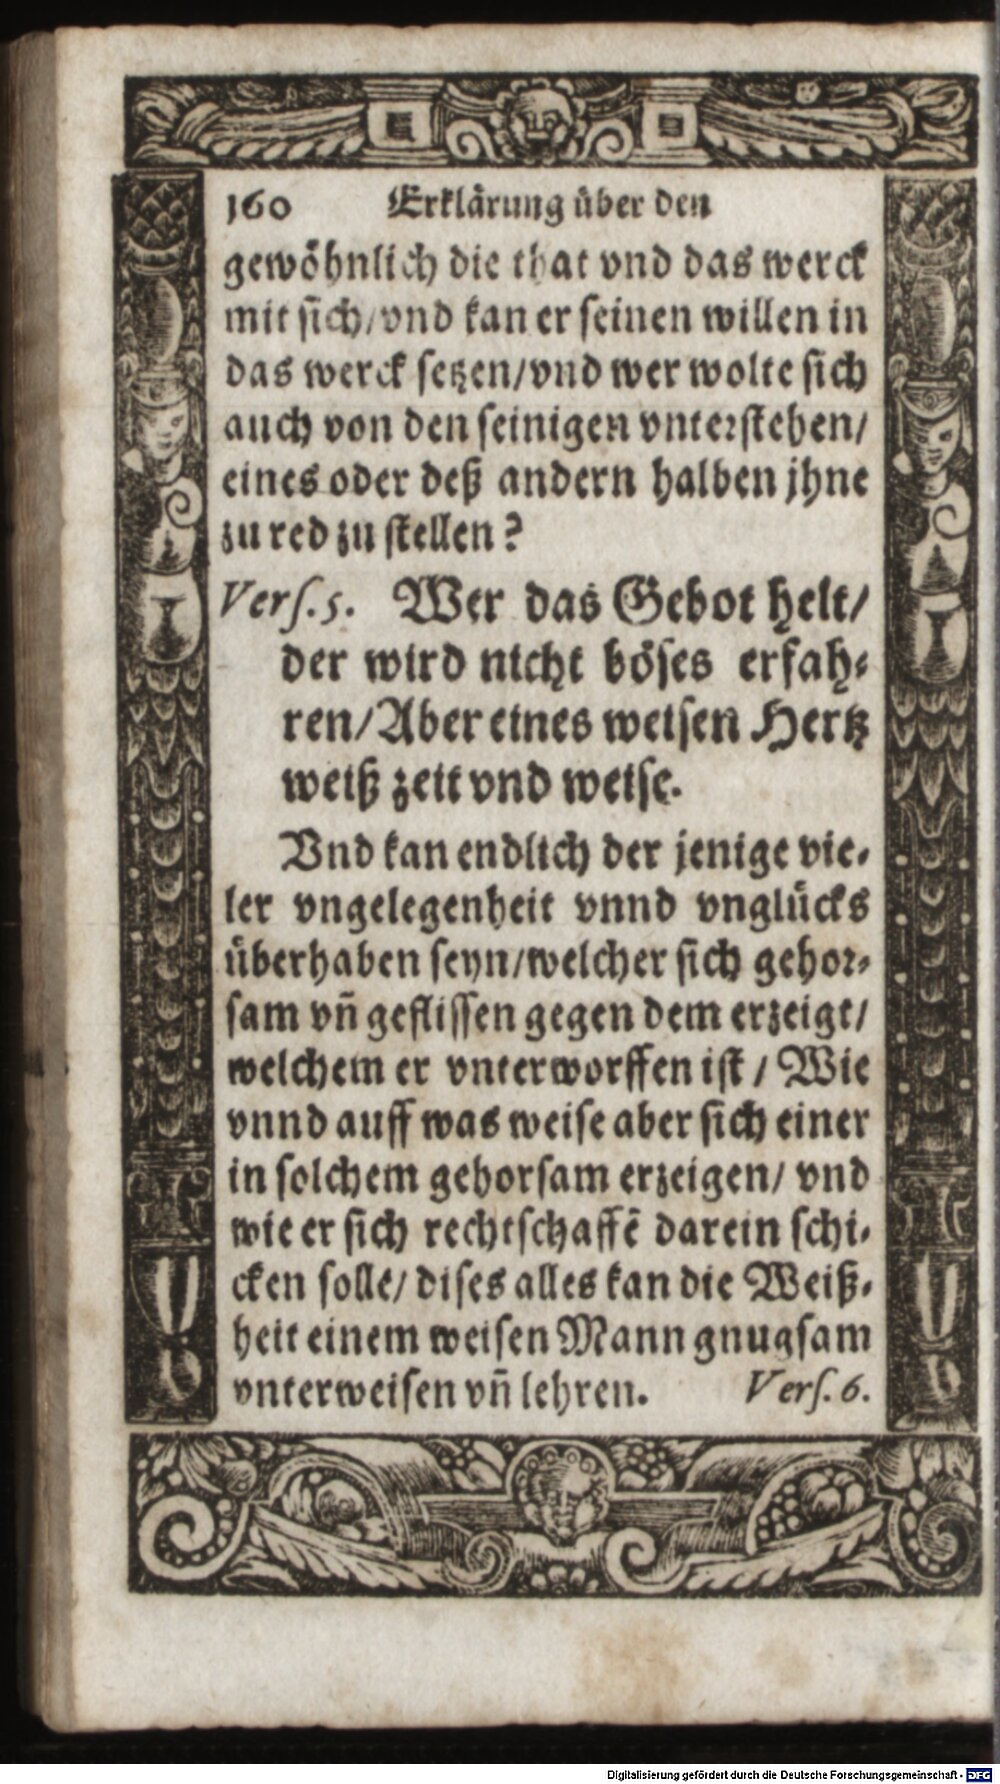 160 Erklärung über den
gewöhnlich die that vnd das werck
mit sich/vnd kan er seinen willen in
das werck setzen/vnd wer wolte sich
auch von den seinigen vnterstehen/
eines oder deß andern halben jhne
zu red zu stellen?
Vers. 5. Wer das Gebot helt/
der wird nicht böses erfah-
ren/Aber eines weisen Hertz
weiß zeit vnd weise.
Vnd kan endlich der jenige vie-
ler vngelegenheit vnnd vnglücks
überhaben seyn/welcher sich gehor-
sam vñ geflissen gegen dem erzeigt/
welchem er vnterworffen ist / Wie
vnnd auff was weise aber sich einer
in solchem gehorsam erzeigen/ vnd
wie er sich rechtschaffẽ darein schi-
cken solle/ dises alles kan die Weiß-
heit einem weisen Mann gnugsam
vnterweisen vñ lehren. Vers. 6.
Digitalisierung gefördert durch die Deutsche Forschungsgemeinschaft - DFG